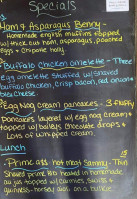 Specials
Ham & Asparagus Benny -
homemade english muffins topped
w/ thick cut ham, asparagus, poached
eggs & Chipotle holly
Buffalo Chicken omelette - Three
Egg omelette Stuffed w/ Shaved
buffalo Chicken, Crisp bacon, red onion
bleu cheese
Egg Nog Cream pancakes - 3 Fluffy
Pancakes layered w/ egg nog cream
topped w/ baileys chocolate drops &
Lots of whipped cream.
Lunch
Prime ass hot meat Sammy - Thin
Shaved prime rib heated in homemade
au jus topped w/ carmelized swiss &
horsey aioli on a bulkie